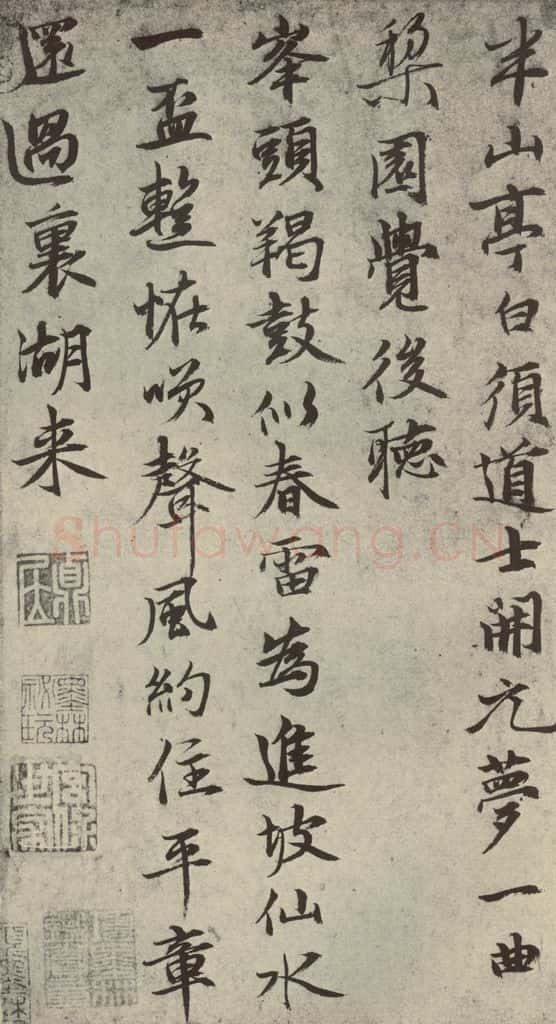 半山亭白須道士開元夢一曲
棃園覺後聽
峯頭羯鼓似春雷為進坡仙水
一盃蹔恠咲聲風約住平章
還過裏湖来
Shufawang.CN